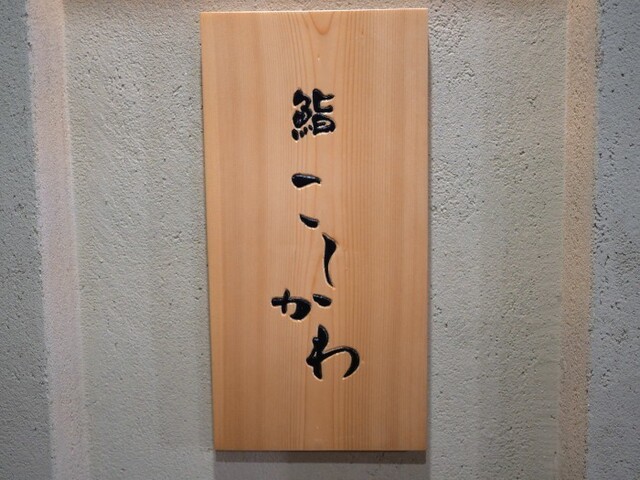 鮨 こしかわ